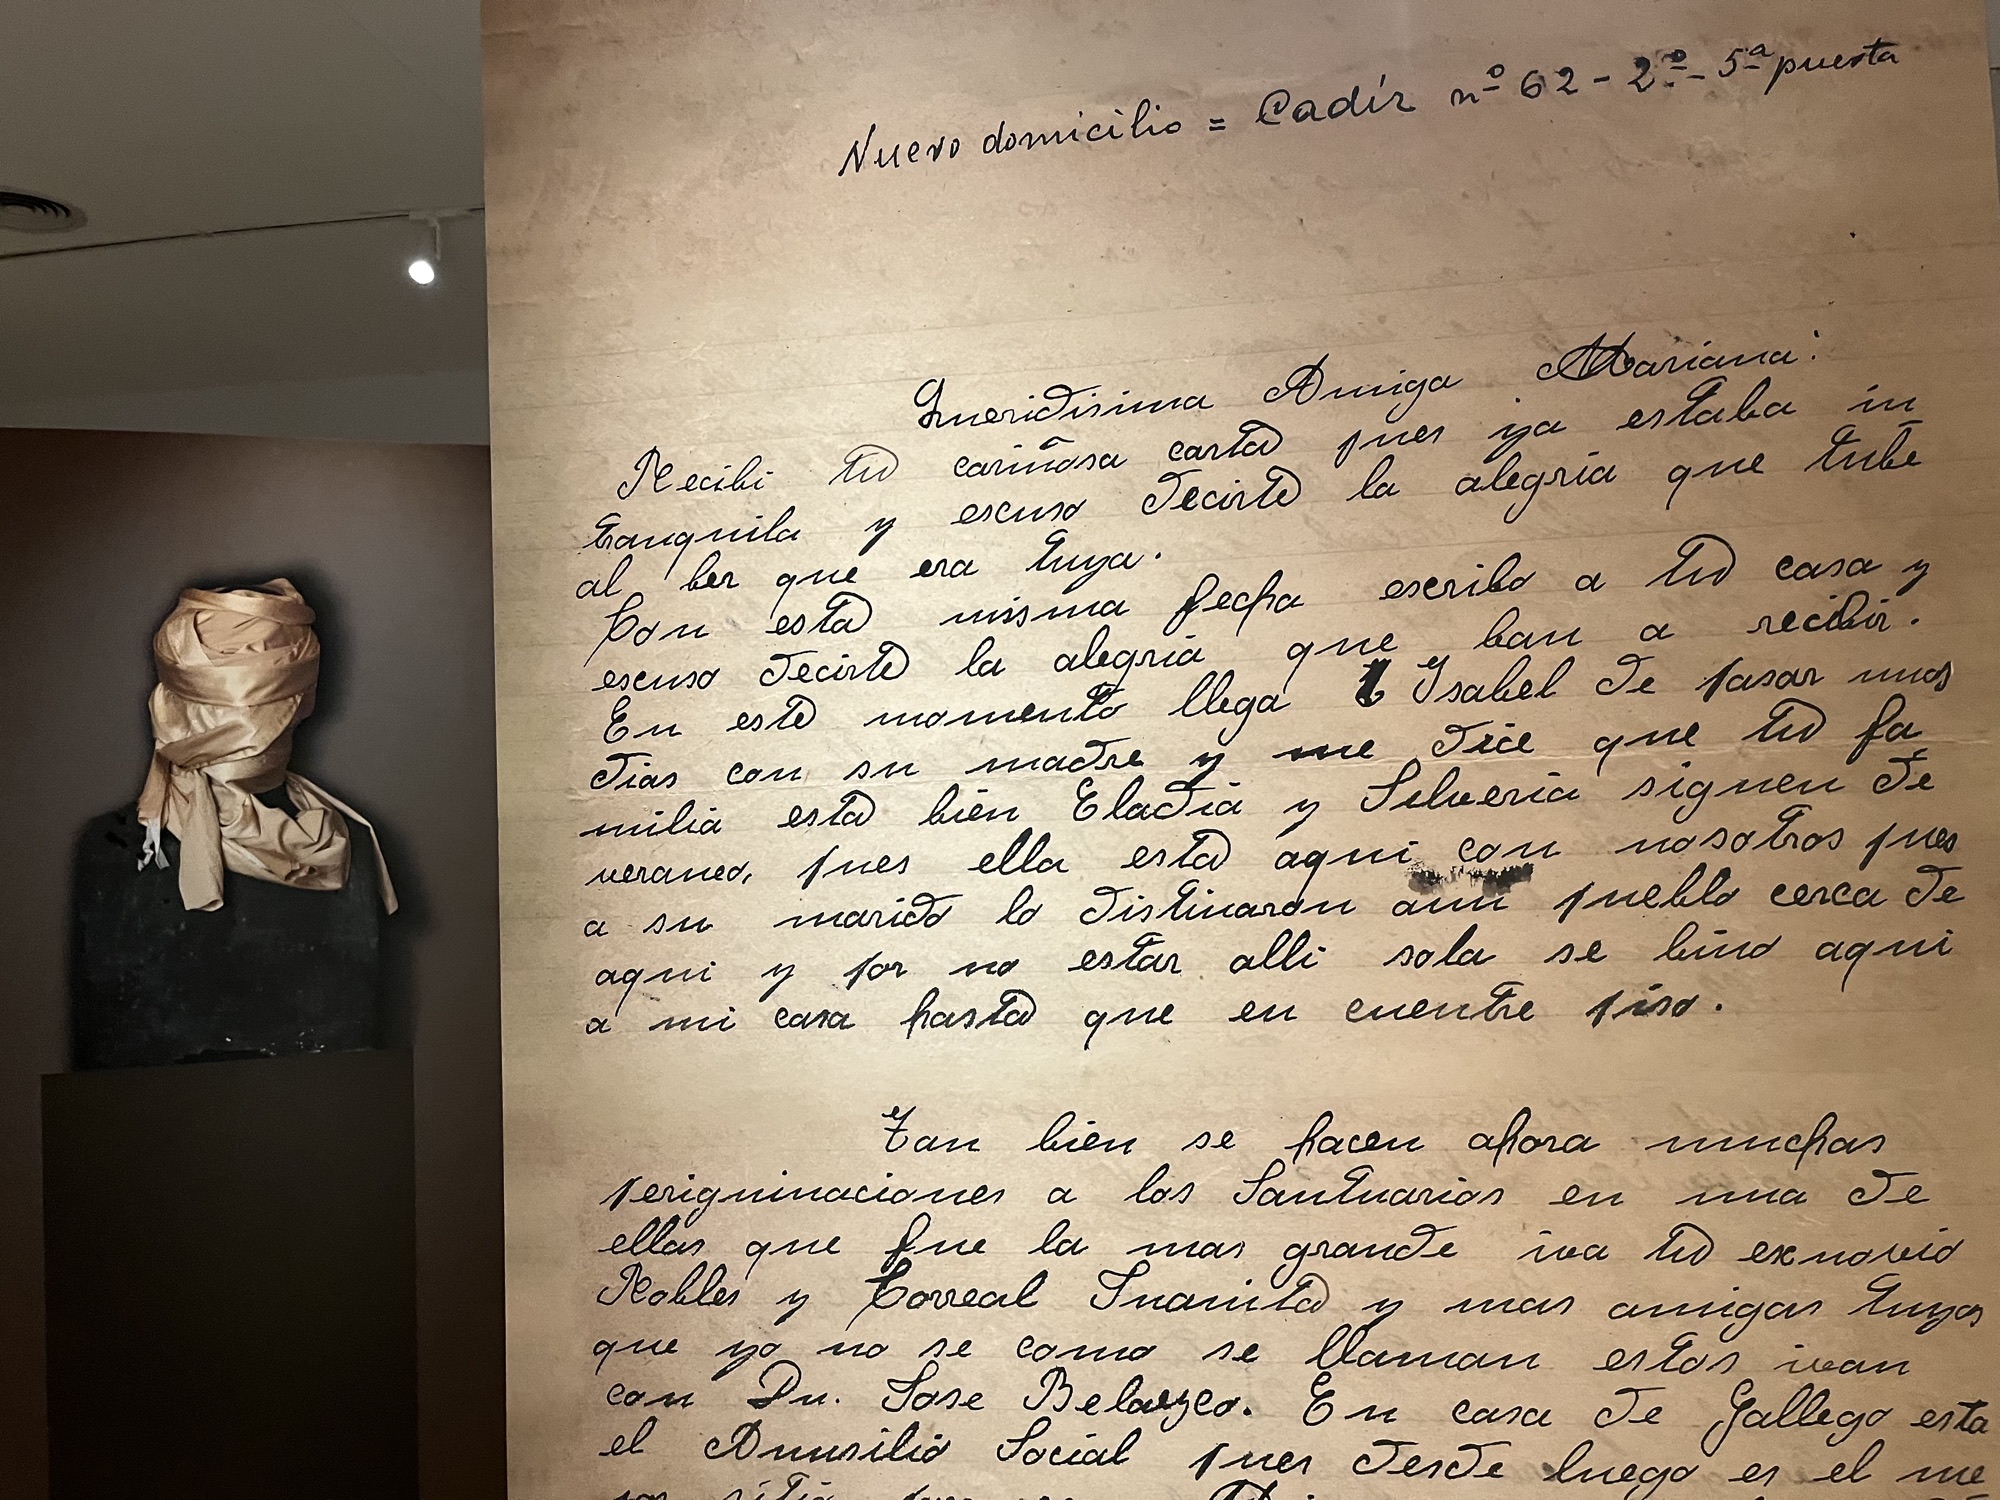 Nuevo domicilio = Cadíz nº 62 - 2º - 5ª puerta
Queridisima Amiga Mariana:
Recibi tu cariñosa carta pues ya estaba in
tranquila y escuso decirte la alegria que tube
al ber que era tuya.
Con esta misma fecha escribo a tu casa y
escuso decirte la alegria que ban a recibir.
En este momento llega Ysabel de pasar unos
dias con su madre y me dice que tu fa
milia esta bien Eladia y Silveria siguen de
veraneo, pues ella esta aqui con nosotros pues
a su marido lo distinaron aun pueblo cerca de
aqui y por no estar alli sola se bino aqui
a mi casa hasta que en cuentre piso.
Tan bien se hacen ahora muchas
perigninaciones a los Santuarios en una de
ellas que fue la mas grande iva tu exnovio
Robles y Correal Juanita y mas amigas tuyas
que yo no se como se llaman estos ivan
con Dn. Jose Belauzco. En casa de Gallego esta
el Aunsilio Social pues desde luego es el me
jor sitio